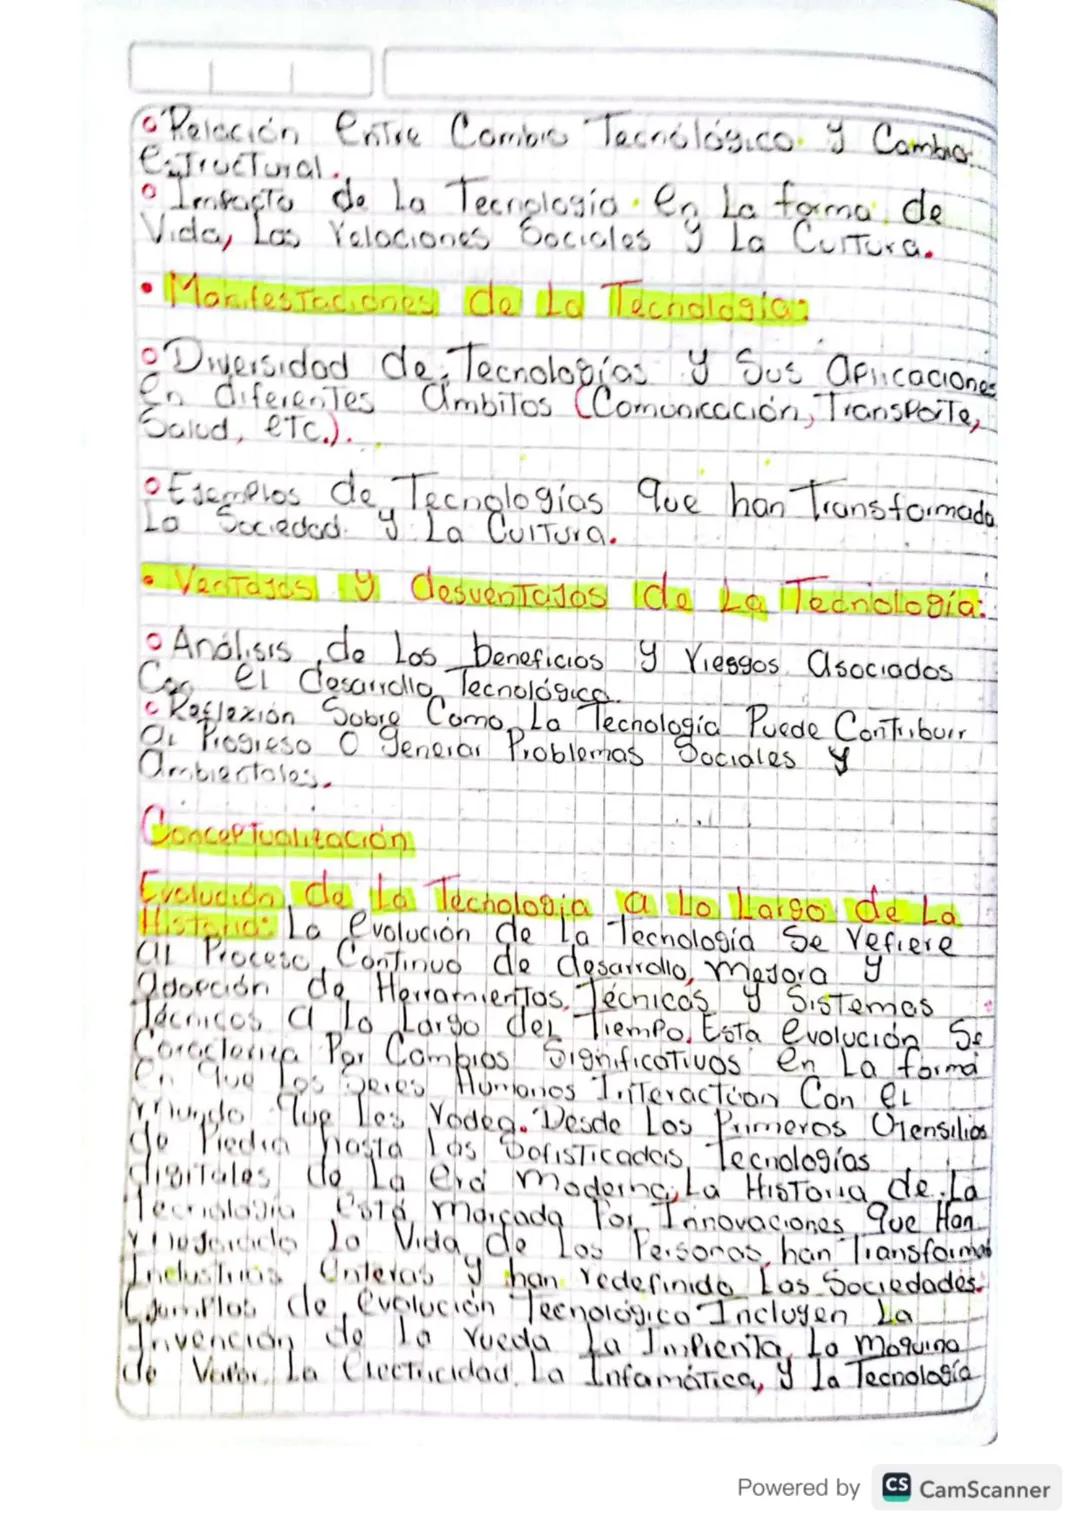 Relación entre Cambio Tecnológico y Cambio
estructural.
Impacto de la Tecnología en la forma de
Vida, las relaciones Sociales y la Cultura.
• Manifestaciones de la Tecnología:
Diversidad de Tecnologías y Sus aplicaciones
en diferentes ámbitos (Comunicación, Transporte,
Salud, etc.).
Ejemplos de Tecnologías que han Transformado
la Sociedad y la Cultura.
• Ventajas y desventajas de la Tecnología:
Análisis de los beneficios y riesgos asociados
Con el desarrollo Tecnológico.
Reflexión Sobre Como la Tecnología Puede Contribuir
al Progreso o generar Problemas Sociales y
ambientales.
Conceptualización
Evolución de la Tecnología a lo Largo de la
Historia: La evolución de la Tecnología Se refiere
al Proceso Continuo de desarrollo, mejora y
adopción de Herramientas, Técnicas y Sistemas
Técnicos a lo Largo del Tiempo. Esta evolución Se
Caracteriza Por Cambios Significativos en la forma
en que los Seres Humanos Interactúan Con el
mundo que los rodea. Desde los Primeros Utensilios
de Piedra hasta las Sofisticadas Tecnologías
digitales de la era moderna, la Historia de la
Tecnología está marcada Por Innovaciones que Han
mejorado la Vida de las Personas, han Transformado
Industrias enteras y han redefinido las Sociedades.
Ejemplos de evolución Tecnológica Incluyen la
Invención de la rueda la Imprenta, la maquina
de Vapor, la Electricidad, la Infomática, y la Tecnología
Powered by CS CamScanner